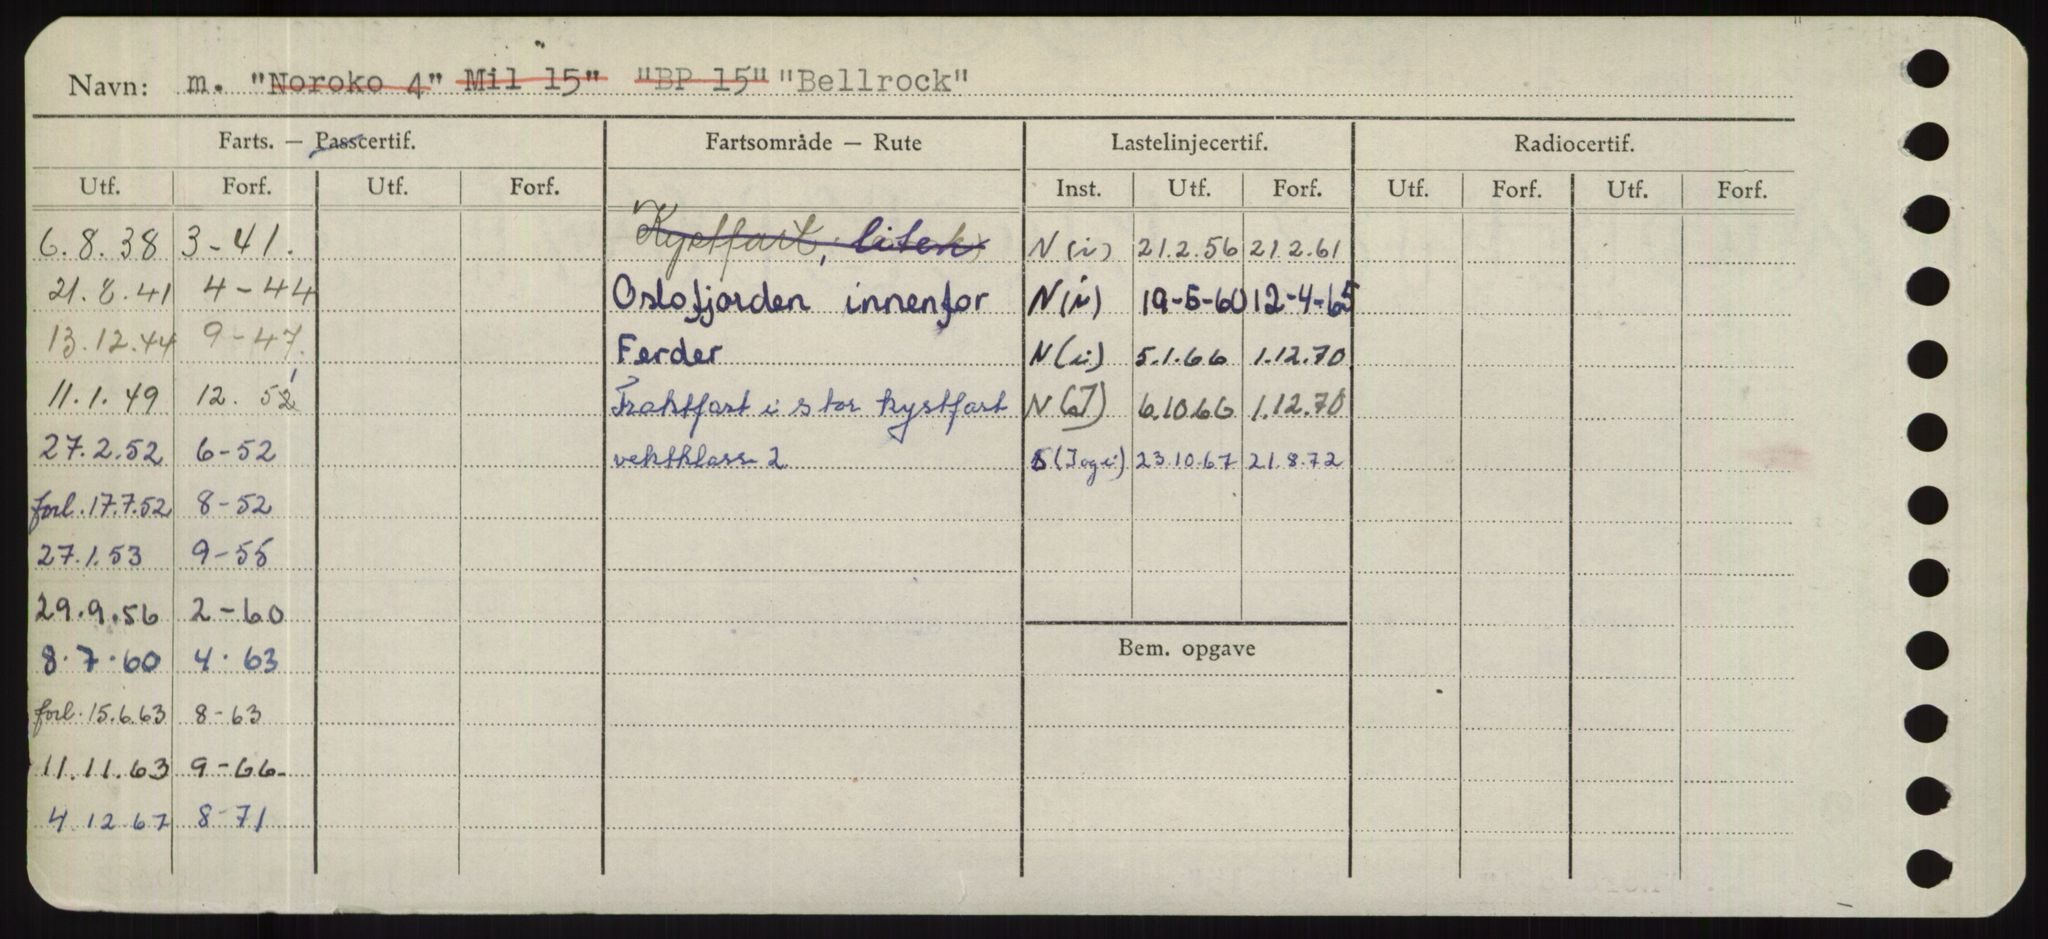 Navn: m. "Noroko 4" Mil 15" "BP 15" "Bellrock"
Farts. — Passcertif. Fartsområde — Rute Lastelinjecertif. Radiocertif.
Utf. Forf. Utf. Forf. Inst. Utf. Forf. Utf. Forf. Utf. Forf.
6.8.38 3-41. Kystfart, liten N(i) 21.2.56 21.2.61
21.8.41 4-44 Oslofjorden innenfor N(i) 19-5-60 12-4-65
13.12.44 9-47. Ferder N(i) 5.1.66 1.12.70
11.1.49 12.52 Fraktfart i stor kystfart N(J) 6.10.66 1.12.70
27.2.52 6-52 vektklasse 2 S(J og i) 23.10.67 21.8.72
forl. 17.7.52 8-52
27.1.53 9-55
29.9.56 2-60
8.7.60 4.63 Bem. opgave
forl. 15.6.63 8-63
11.11.63 9-66-
4.12.67 8-71